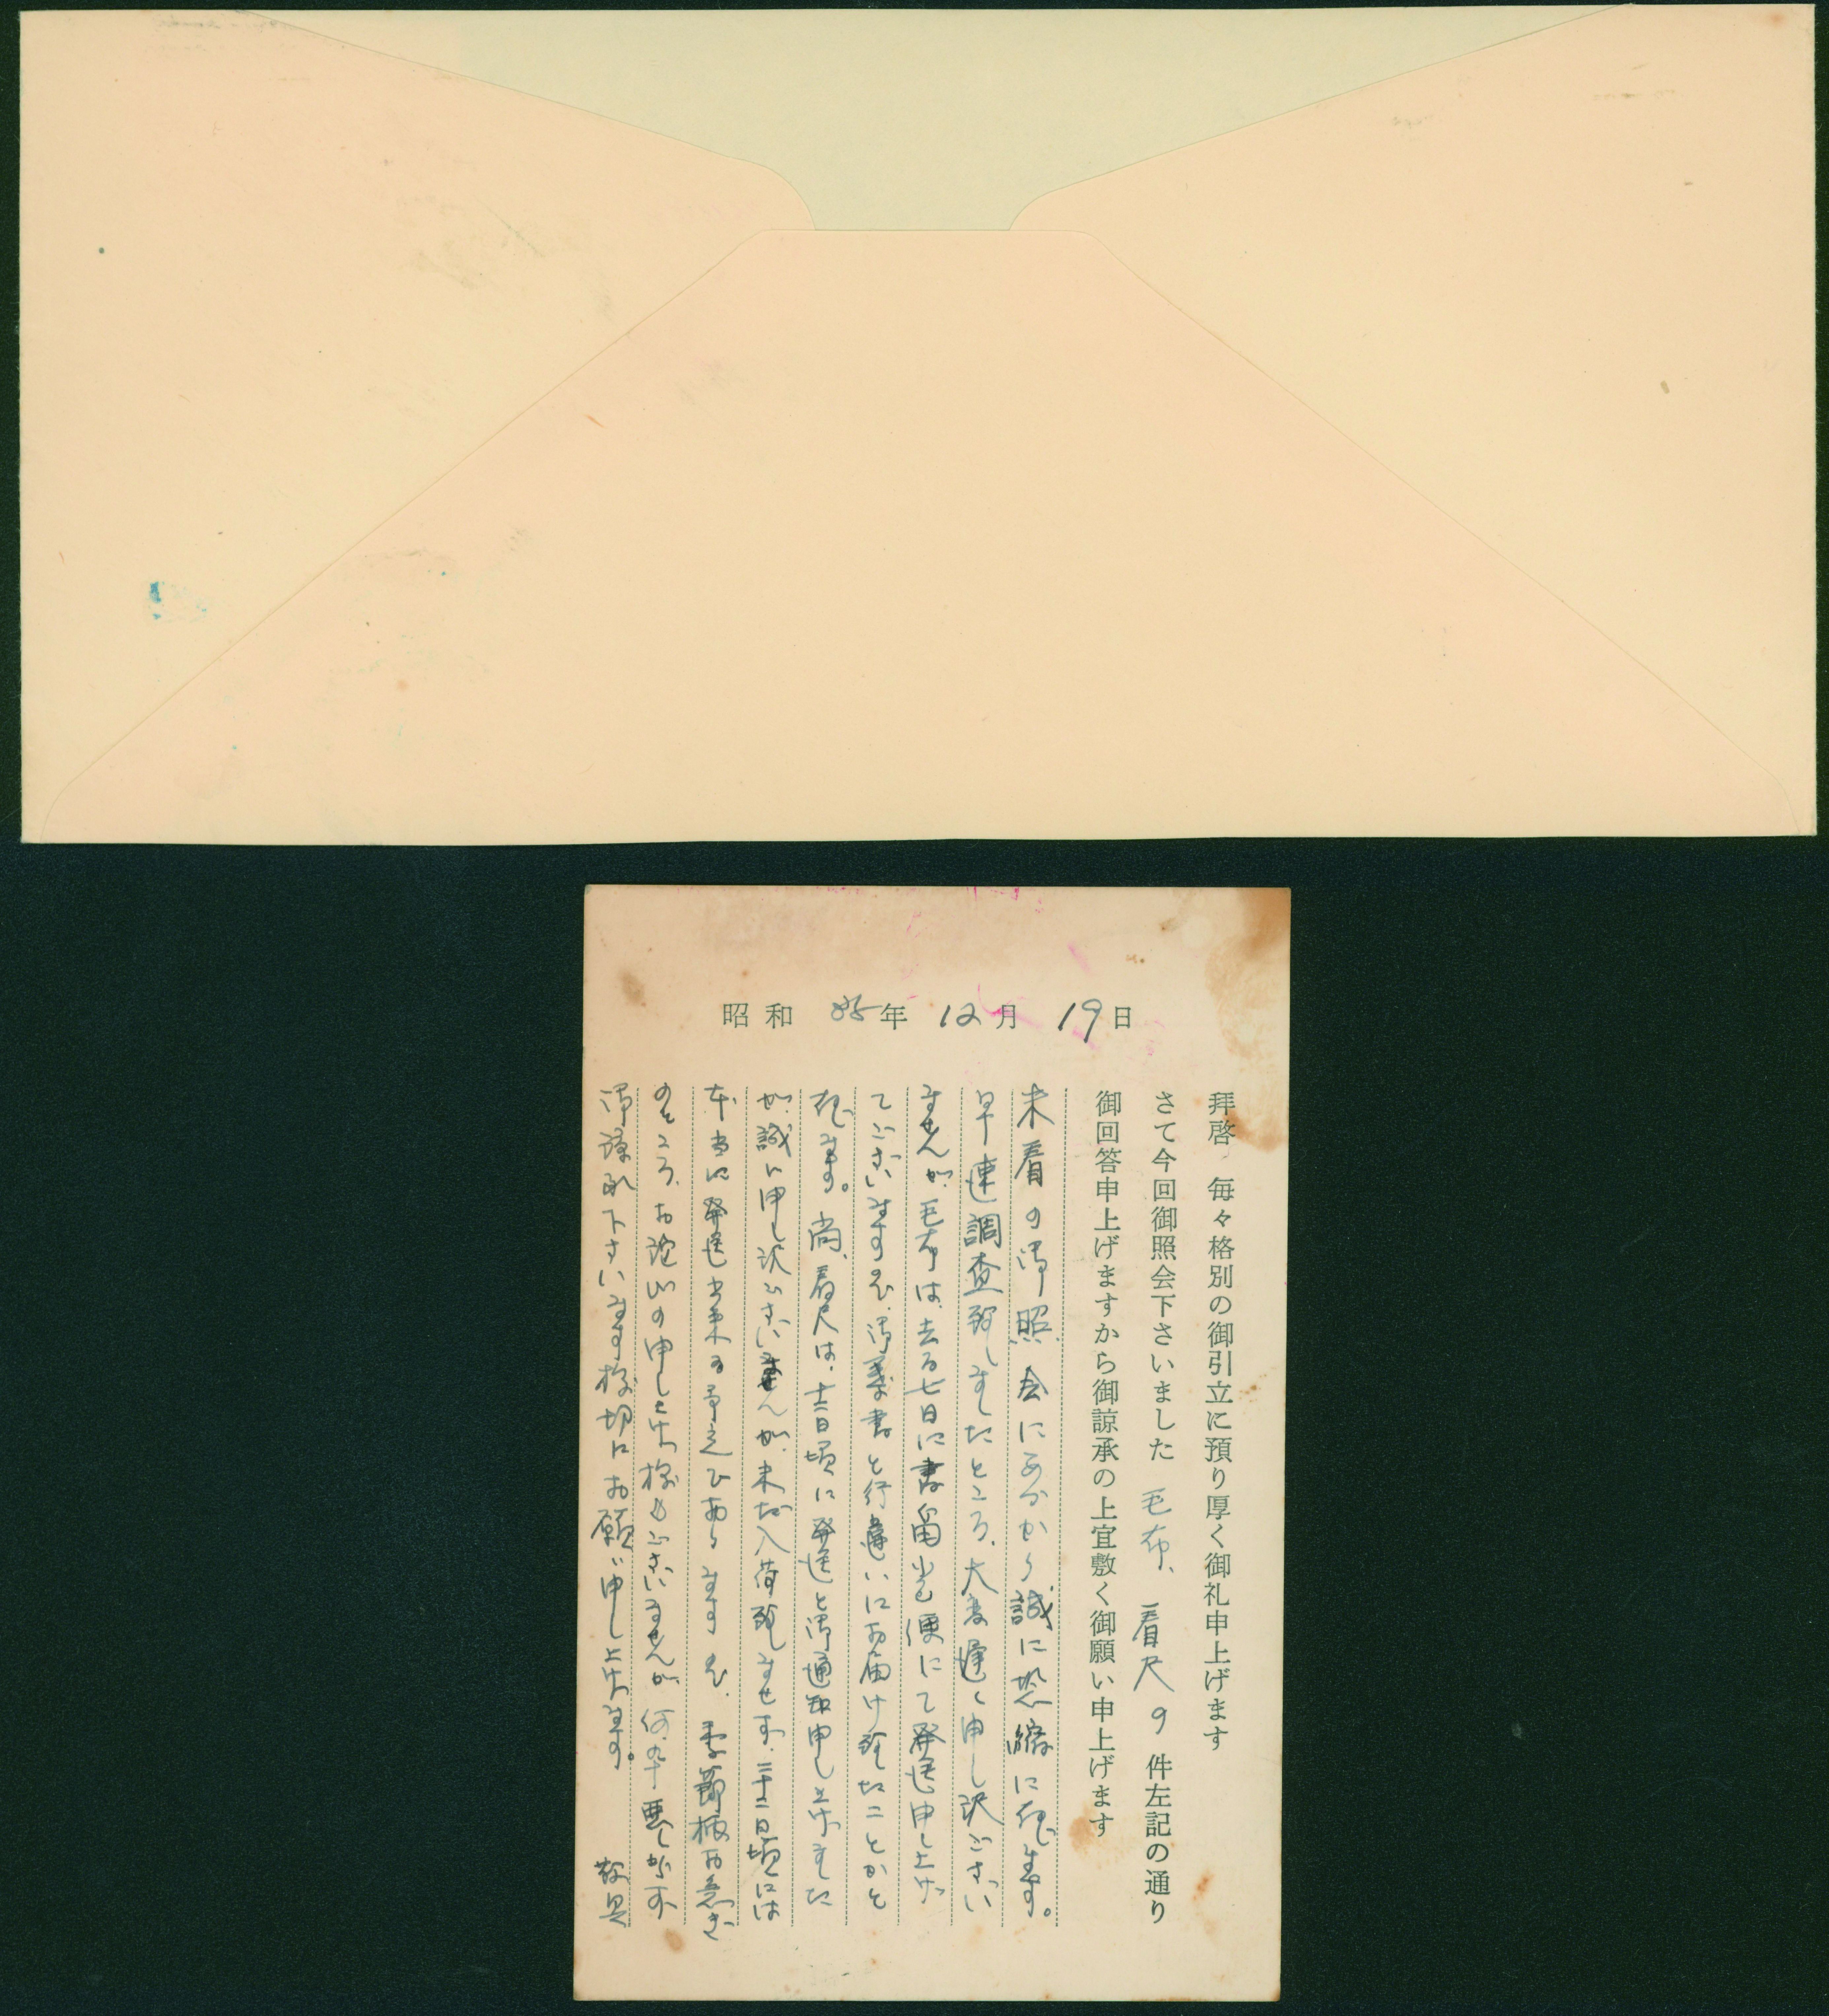 昭和 35年 12月 19日
拝啓 毎々格別の御引立に預り厚く御礼申上げます
さて今回御照会下さいました 毛布、着尺の 件左記の通り
御回答申上げますから御諒承の上宜敷く御願い申上げます
未着の御照会にあづかり誠に恐縮に存じます。
早速調査致しましたところ、大変遅く申し訳ござい
ませんが、毛布は、去る七日に書留小包便にて発送申し上げ
てございますので、御葉書と行違いにお届け致したことかと
存じます。尚、着尺は、十三日頃に発送と御通知申し上げました
が、誠に申し訳ございませんが、未だ入荷致しませず、二十二日頃には
本当に発送出来る予定でありますので、季節柄お急ぎ
のところ、お詫びの申し上げ様もございませんが、何卒悪しからず
御諒承下さいます様切にお願い申し上げます。 敬具